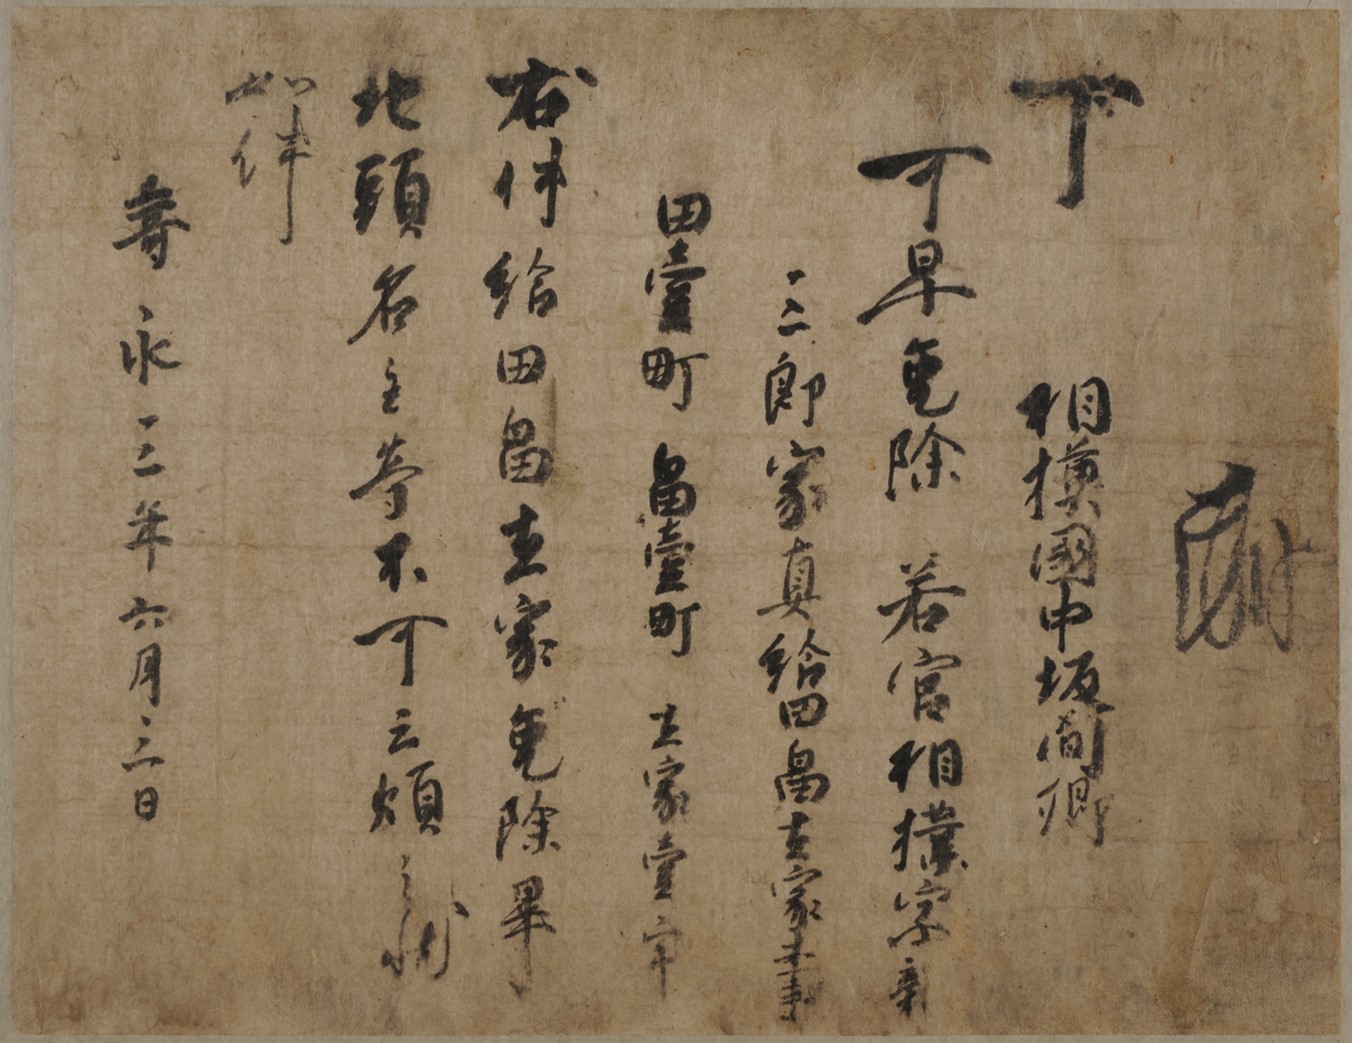 下　相模國中坂間郷
可早免除　若宮相撲字新
三郎家真給田畠在家等事
田壹町　畠壹町　在家壹宇
右件給田畠在家免除畢
地頭名主等不可云煩之状
如件
壽永三年六月三日